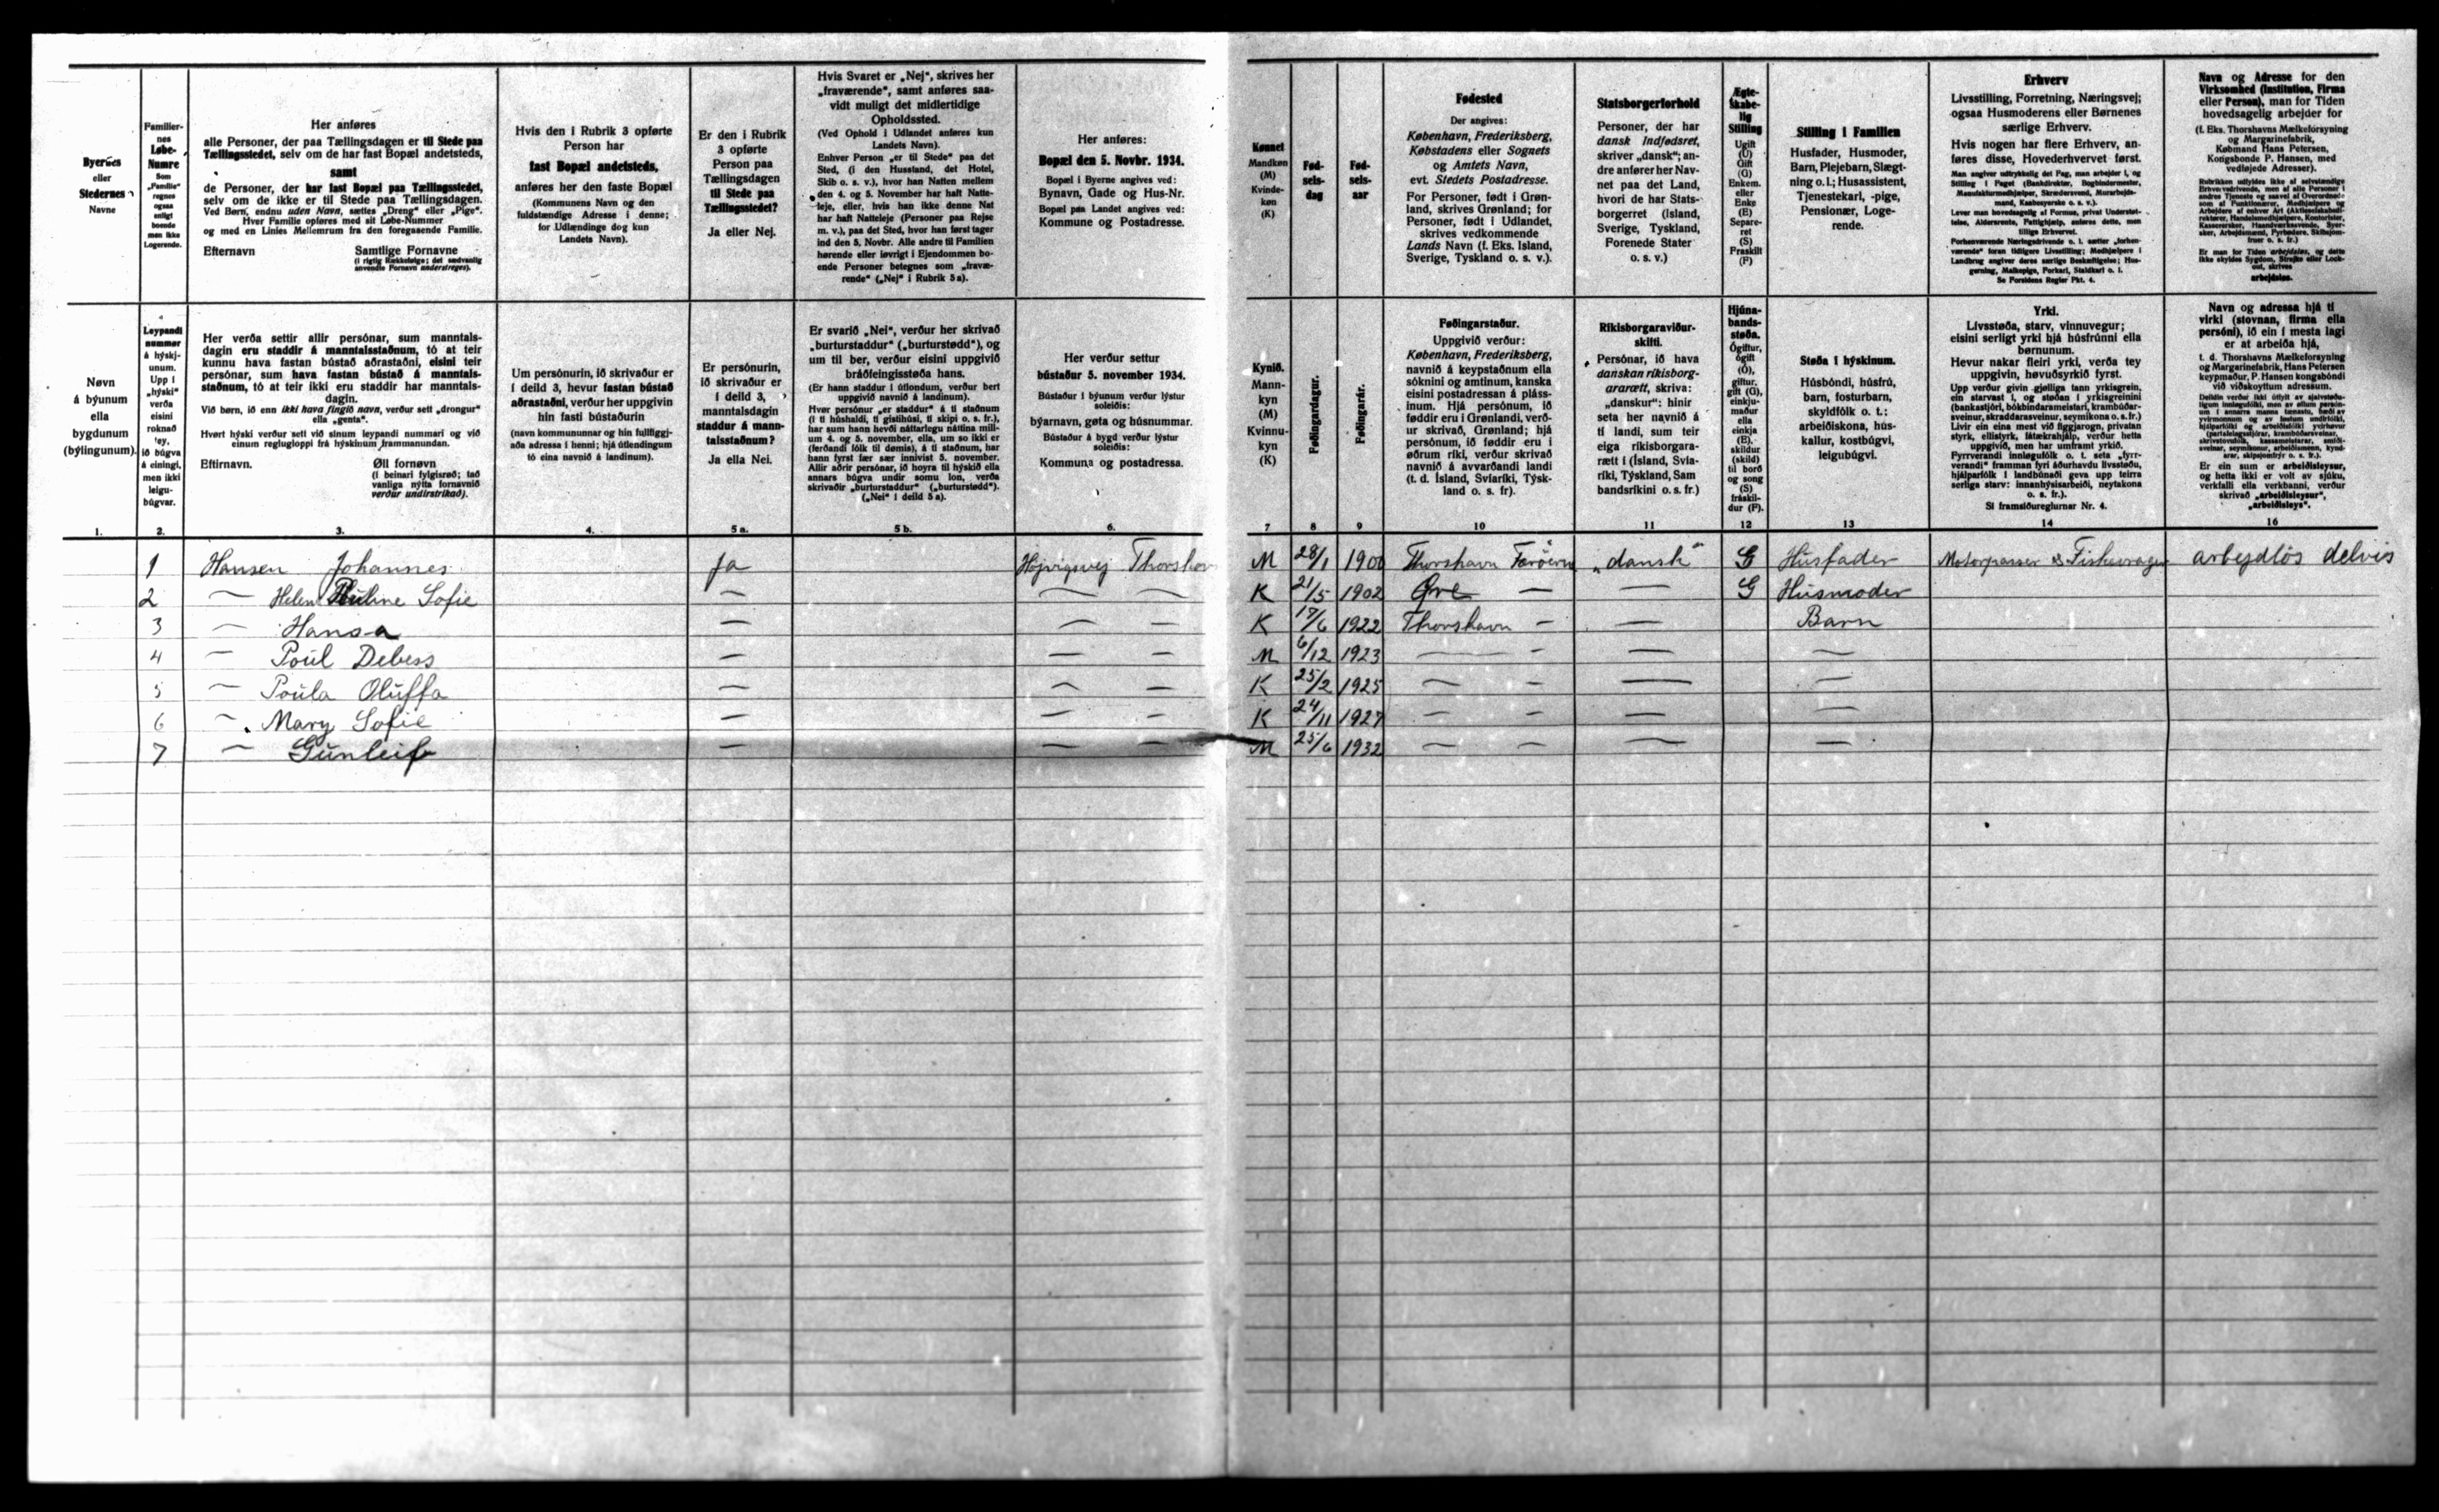 Byernes
eller
Stedernes
Navne
Familier-
nes
Løbe-
Numre
Som
„Familie"
regnes
ogsaa
enligt
boende
men ikke
Logerende.
Her anføres
alle Personer, der paa Tællingsdagen er til Stede paa
Tællingsstedet, selv om de har fast Bopæl andetsteds,
samt
de Personer, der har fast Bopæl paa Tællingsstedet,
selv om de ikke er til Stede paa Tællingsdagen.
Ved Børn, endnu uden Navn, sættes „Dreng" eller „Pige".
Hver Familie opføres med sit Løbe-Nummer
og med en Linies Mellemrum fra den foregaaende Familie.
Efternavn Samtlige Fornavne
(i rigtig Rækkefølge; det sædvanlig
anvendte Fornavn understreges).
Hvis den i Rubrik 3 opførte
Person har
fast Bopæl andetsteds,
anføres her den faste Bopæl
(Kommunens Navn og den
fuldstændige Adresse i denne;
for Udlændinge dog kun
Landets Navn).
Er den i Rubrik
3 opførte
Person paa
Tællingsdagen
til Stede paa
Tællingsstedet?
Ja eller Nej.
Hvis Svaret er „Nej", skrives her
„fraværende", samt anføres saa-
vidt muligt det midlertidige
Opholdssted.
(Ved Ophold i Udlandet anføres kun
Landets Navn).
Enhver Person „er til Stede" paa det
Sted, (i den Husstand, det Hotel,
Skib o. s. v.), hvor han Natten mellem
den 4. og 5. November har haft Natte-
leje, eller, hvis han ikke denne Nat
har haft Natteleje (Personer paa Rejse
m. v.), paa det Sted, hvor han først tager
ind den 5. Novbr. Alle andre til Familien
hørende eller iøvrigt i Ejendommen bo-
ende Personer betegnes som „fravæ-
rende" („Nej" i Rubrik 5a).
Her anføres:
Bopæl den 5. Novbr. 1934.
Bopæl i Byerne angives ved:
Bynavn, Gade og Hus-Nr.
Bopæl paa Landet angives ved:
Kommune og Postadresse.
Kønnet
Mandkøn
(M)
Kvinde-
køn
(K)
Fød-
sels-
dag
Fød-
sels-
aar
Fødested
Der angives:
København, Frederiksberg,
Købstadens eller Sognets
og Amtets Navn,
evt. Stedets Postadresse.
For Personer, født i Grøn-
land, skrives Grønland; for
Personer, født i Udlandet,
skrives vedkommende
Lands Navn (f. Eks. Island,
Sverige, Tyskland o. s. v.).
Statsborgerforhold
Personer, der har
dansk Indfødsret,
skriver „dansk"; an-
dre anfører her Nav-
net paa det Land,
hvori de har Stats-
borgerret (Island,
Sverige, Tyskland,
Forenede Stater
o. s. v.)
Ægte-
skabe-
lig
Stilling
Ugift
(U)
Gift
(G)
Enkem.
eller
Enke
(E)
Separe-
ret
(S)
Fraskilt
(F)
Stilling i Familien
Husfader, Husmoder,
Barn, Plejebarn, Slægt-
ning o. l.; Husassistent,
Tjenestekarl, -pige,
Pensionær, Loge-
rende.
Erhverv
Livsstilling, Forretning, Næringsvej;
ogsaa Husmoderens eller Børnenes
særlige Erhverv.
Hvis nogen har flere Erhverv, an-
føres disse, Hovederhvervet først.
Man angiver udtrykkelig det Fag, man arbejder i, og
Stilling i Faget (Bankdirektør, Bogbindermester,
Manufakturmedhjælper, Skrædersvend, Murarbejds-
mand, Kaabesyerske o. s. v.).
Lever man hovedsagelig af Formue, privat Understøt-
telse, Aldersrente, Fattighjælp, anføres dette, men
tillige Erhvervet.
Forhenværende Næringsdrivende o. l. sætter „forhen-
værende" foran tidligere Livsstilling; Medhjælpere i
Landbrug angiver deres særlige Beskæftigelse; Hus-
gerning, Malkepige, Forkarl, Staldkarl o. l.
Se Forsidens Regler Pkt. 4.
Navn og Adresse for den
Virksomhed (Institution, Firma
eller Person), man for Tiden
hovedsagelig arbejder for
(f. Eks. Thorshavns Mælkeforsyning
og Margarinefabrik,
Købmand Hans Petersen,
Kongsbonde P. Hansen, med
vedføjede Adresser).
Er man for Tiden arbejdsløs, og dette
ikke skyldes Sygdom, Strejke eller Lock-
out, skrives
arbejdsløs.
Nøvn
á býunum
ella
bygdunum
(býlingunum).
Leypandi
nummør
á hýskj-
unum.
Upp í
„hýski"
verða
eisini
roknað
tey,
ið búgva
á einingi,
men ikki
leigu-
búgvar.
Her verða settir allir persónar, sum manntals-
dagin eru staddir á manntalsstaðnum, tó at teir
kunnu hava fastan bústað aðrastaðni, eisini teir
persónar, sum hava fastan bústað á manntals-
staðnum, tó at teir ikki eru staddir har manntals-
dagin.
Við børn, ið enn ikki hava fingið navn, verður sett „drongur"
ella „genta".
Hvørt hýski verður sett við sínum leypandi nummari og við
einum reglugloppi frá hýskinum frammanundan.
Eftirnavn. Øll fornøvn
(í beinari fylgisrøð; tað
vanliga nýtta fornavnið
verður undirstrikað).
Um persónurin, ið skrivaður er
í deild 3, hevur fastan bústað
aðrastaðni, verður her uppgivin
hin fasti bústaðurin
(navn kommununnar og hin fullfiggj-
aða adressa í henni; hjá útlendingum
tó eina navnið á landinum).
Er persónurin,
ið skrivaður er
í deild 3,
manntalsdagin
staddur á mann-
talsstaðnum?
Ja ella Nei.
Er svarið „Nei", verður her skrivað
„burturstaddur" („burturstødd"), og
um til ber, verður eisini uppgivið
bráðfeingisstøða hans.
(Er hann staddur í útlondum, verður bert
uppgivið navnið á landinum).
Hvør persónur „er staddur" á tí staðnum
(í tí húshaldi, tí gistihúsi, tí skipi o. s. fr.),
har sum hann hevði náttarlegu náttina mill-
um 4. og 5. november, ella, um so ikki er
(ferðandi fólk til dømis), á tí staðnum, har
hann fyrst fær sær innivist 5. november.
Allir aðrir persónar, ið hoyra til hýskið ella
annars búgva undir somu lon, verða
skrivaðir „burturstaddur" („burturstødd").
(„Nei" í deild 5a).
Her verður settur
bústaður 5. november 1934.
Bústaður í býunum verður lýstur
soleiðis:
býarnavn, gøta og húsnummar.
Bústaður á bygd verður lýstur
soleiðis:
Kommuna og postadressa.
Kynið.
Mann-
kyn
(M)
Kvinnu-
kyn
(K)
Føðingardagur.
Føðingarár.
Føðingarstaður.
Uppgivið verður:
København, Frederiksberg,
navnið á keypstaðnum ella
sóknini og amtinum, kanska
eisini postadressan á pláss-
inum. Hjá persónum, ið
føddir eru í Grønlandi, verð-
ur skrivað, Grønland; hjá
persónum, ið føddir eru í
øðrum ríki, verður skrivað
navnið á avvarðandi landi
(t. d. Ísland, Svíaríki, Týsk-
land o. s. fr).
Ríkisborgaraviður-
skifti.
Persónar, ið hava
danskan ríkisborg-
ararætt, skriva:
„danskur": hinir
seta her navnið á
tí landi, sum teir
eiga ríkisborgara-
rætt í (Ísland, Svía-
ríki, Týskland, Sam
bandsríkini o. s. fr.)
Hjúna-
bands-
støða.
Ógiftur,
ógift
(Ó),
giftur,
gift (G),
einkju-
maður
ella
einkja
(E).
skildur
(skild)
til borð
og song
(S)
fráskil-
dur (F).
Støða í hýskinum.
Húsbóndi, húsfrú,
barn, fosturbarn,
skyldfólk o. t.:
arbeiðiskona, hús-
kallur, kostbúgvi,
leigubúgvi.
Yrki.
Livsstøða, starv, vinnuvegur;
eisini serligt yrki hjá húsfrúnni ella
børnunum.
Hevur nakar fleiri yrki, verða tey
uppgivin, høvuðsyrkið fyrst.
Upp verður givin gjølliga tann yrkisgrein,
ein starvast í, og støðan í yrkisgreinini
(bankastjóri, bókbindarameistari, krambúðar-
sveinur, skraddarasveinur, seymikona o. s. fr.)
Livir ein eina mest við figgjarogn, privatan
styrk, ellistyrk, fátækrahjálp, verður hetta
uppgivið, men har umframt yrkið.
Fyrrverandi innleguFólk o. t. seta „fyrr-
verandi" framman fyri áðurhavdu livsstøðu,
hjálparfólk í landbúnaði geva upp teirra
serliga starv: innanhýsisarbeiði, neytakona
o. s. fr.).
Sí framsíðureglurnar Nr. 4.
Navn og adressa hjá tí
virki (stovnan, firma ella
persóni), ið ein í mesta lagi
er at arbeiða hjá,
t. d. Thorshavns Mælkeforsyning
og Margarinefabrik, Hans Petersen
keypmaður, P. Hansen kongsbóndi
við viðskoyttum adressum.
Er ein sum er arbeiðisleysur,
og hetta ikki er volt av sjúku,
verkfalli ella verkbanni, verður
skrivað „arbeiðisleysur",
„arbeiðisleys".
1. 2. 3. 4. 5 a. 5 b. 6. 7 8 9 10 11 12 13 14 16
1 Hansen Johannes Ja Højvigsvej Thorshavn M 28/1 1900 Thorshavn Færöerne „dansk" G Husfader Motorpasser & Fiskevrager arbejdlös delvis
2 — Helen Pauline Sofie — — — K 21/5 1902 Øre — — G Husmoder
3 — Hansa — — — K 17/6 1922 Thorshavn — — Barn
4 — Poul Debess — — — M 6/12 1923 — — — —
5 — Poula Oluffa — — — K 25/2 1925 — — — —
6 — Mary Sofie — — — K 24/11 1927 — — — —
7 — Gunleif — — — M 25/6 1932 — — — —